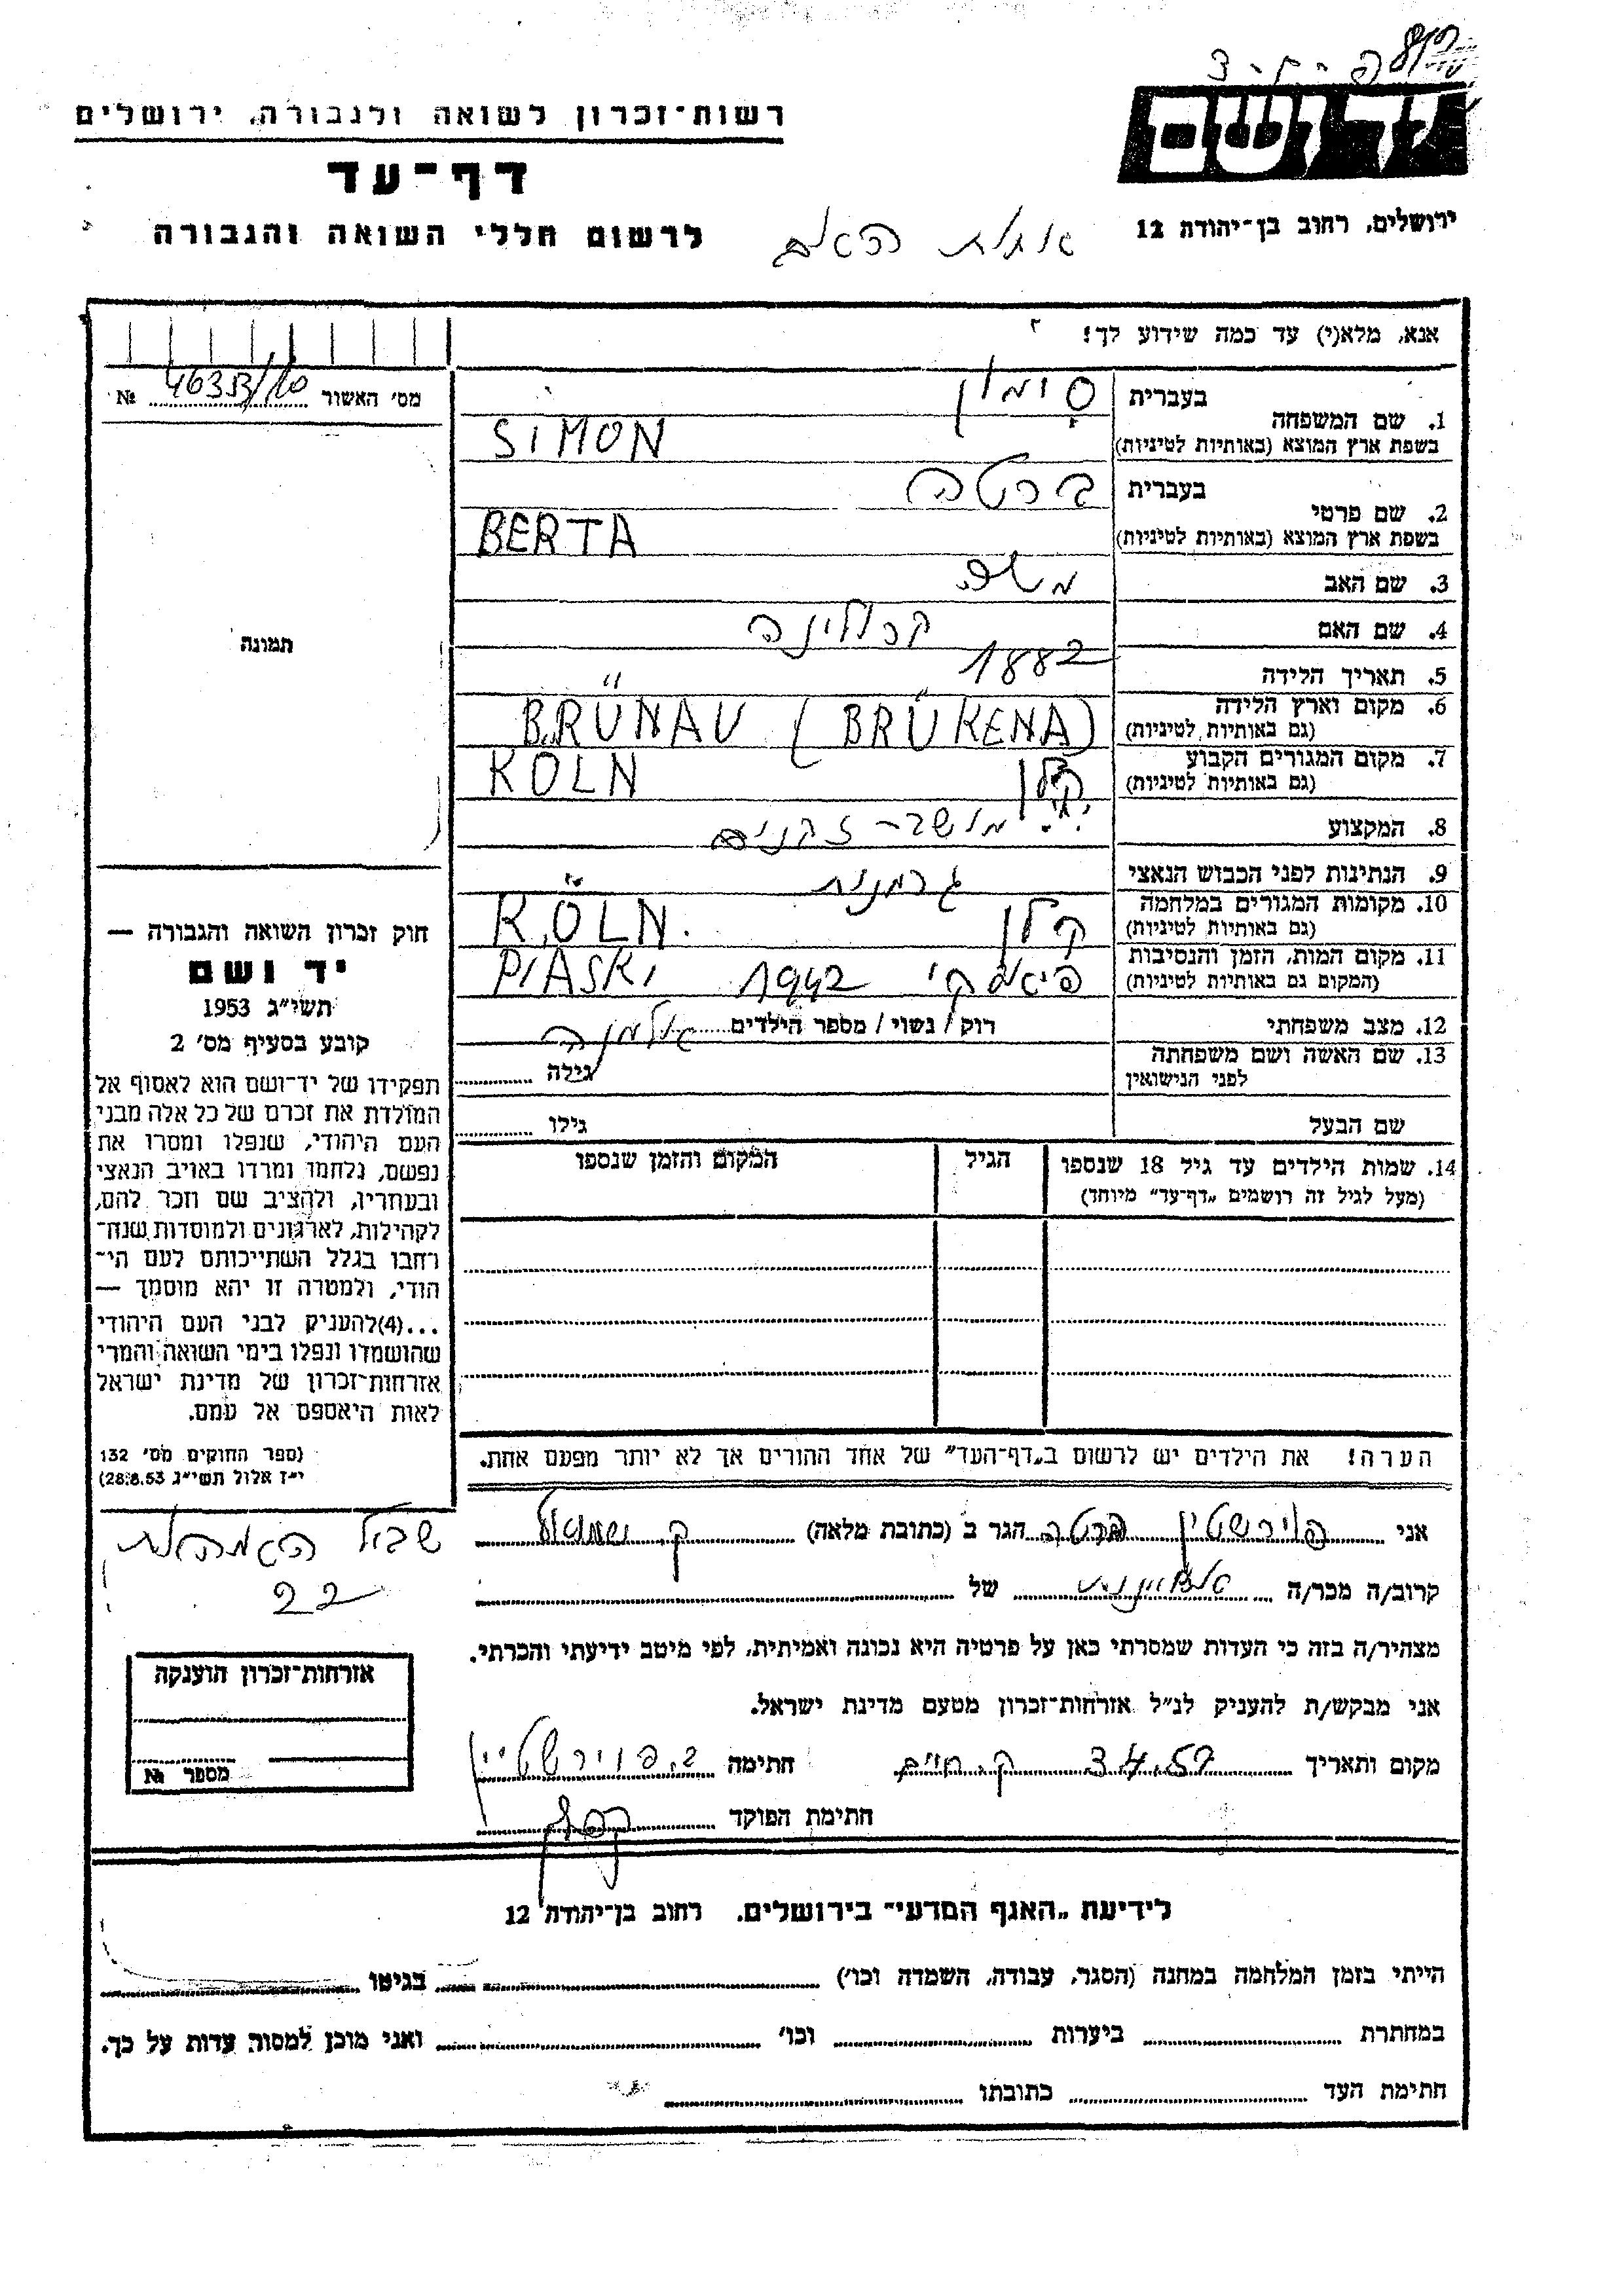 יד ושם
ירושלים, רחוב בן־יהודה 12
רשות־זכרון לשואה ולגבורה, ירושלים
דף־עד
לרשום חללי השואה והגבורה
אנא, מלא(י) עד כמה שידוע לך!
מס׳ האשור №
בעברית סימון
1. שם המשפחה
בשפת ארץ המוצא (באותיות לטיניות) SIMON
בעברית ברטה
2. שם פרטי
בשפת ארץ המוצא (באותיות לטיניות) BERTA
3. שם האב משה
4. שם האם קרולינה
5. תאריך הלידה 1882
6. מקום וארץ הלידה
(גם באותיות לטיניות) BRÜNAU (BRÜKENA)
7. מקום המגורים הקבוע
(גם באותיות לטיניות) קלן KOLN
8. המקצוע מושב־זקנים
9. הנתינות לפני הכבוש הנאצי גרמנית
10. מקומות המגורים במלחמה
(גם באותיות לטיניות) קלן KÖLN.
11. מקום המות, הזמן והנסיבות
(המקום גם באותיות לטיניות) פיאסקי 1942 PIASKI
12. מצב משפחתי רוק / נשוי / מספר הילדים אלמנה
13. שם האשה ושם משפחתה
לפני הנישואין גילה
שם הבעל גילו
14. שמות הילדים עד גיל 18 שנספו הגיל המקום והזמן שנספו
(מעל לגיל זה רושמים „דף־עד״ מיוחד)
תמונה
חוק זכרון השואה והגבורה —
יד ושם
תשי״ג 1953
קובע בסעיף מס׳ 2
תפקידו של יד־ושם הוא לאסוף אל
המולדת את זכרם של כל אלה מבני
העם היהודי, שנפלו ומסרו את
נפשם, נלחמו ומרדו באויב הנאצי
ובעוזריו, ולהציב שם וזכר להם,
לקהילות, לארגונים ולמוסדות שנח־
רחבו בגלל השתייכותם לעם הי־
הודי, ולמטרה זו יהא מוסמך —
...(4)להעניק לבני העם היהודי
שהושמדו ונפלו בימי השואה והמרי
אזרחות־זכרון של מדינת ישראל
לאות היאספם אל עמם.
(ספר החוקים מס׳ 132
י״ז אלול תשי״ג 28.8.53)
הערה! את הילדים יש לרשום ב„דף־העד״ של אחד ההורים אך לא יותר מפעם אחת.
אני פוירשטין ברטה הגר ב (כתובת מלאה) ק. שמואל
22
קרוב/ה מכר/ה של
מצהיר/ה בזה כי העדות שמסרתי כאן על פרטיה היא נכונה ואמיתית, לפי מיטב ידיעתי והכרתי.
אני מבקש/ת להעניק לנ״ל אזרחות־זכרון מטעם מדינת ישראל.
מקום ותאריך ק. חיים חתימה ב. פוירשטיין
חתימת הפוקד
אזרחות־זכרון הוענקה
מספר №
לידיעת „האגף המדעי״ בירושלים, רחוב בן־יהודה 12
הייתי בזמן המלחמה במחנה (הסגר, עבודה, השמדה וכו׳) בגיטו
במחתרת ביערות וכו׳ ואני מוכן למסור עדות על כך.
חתימת העד כתובתו